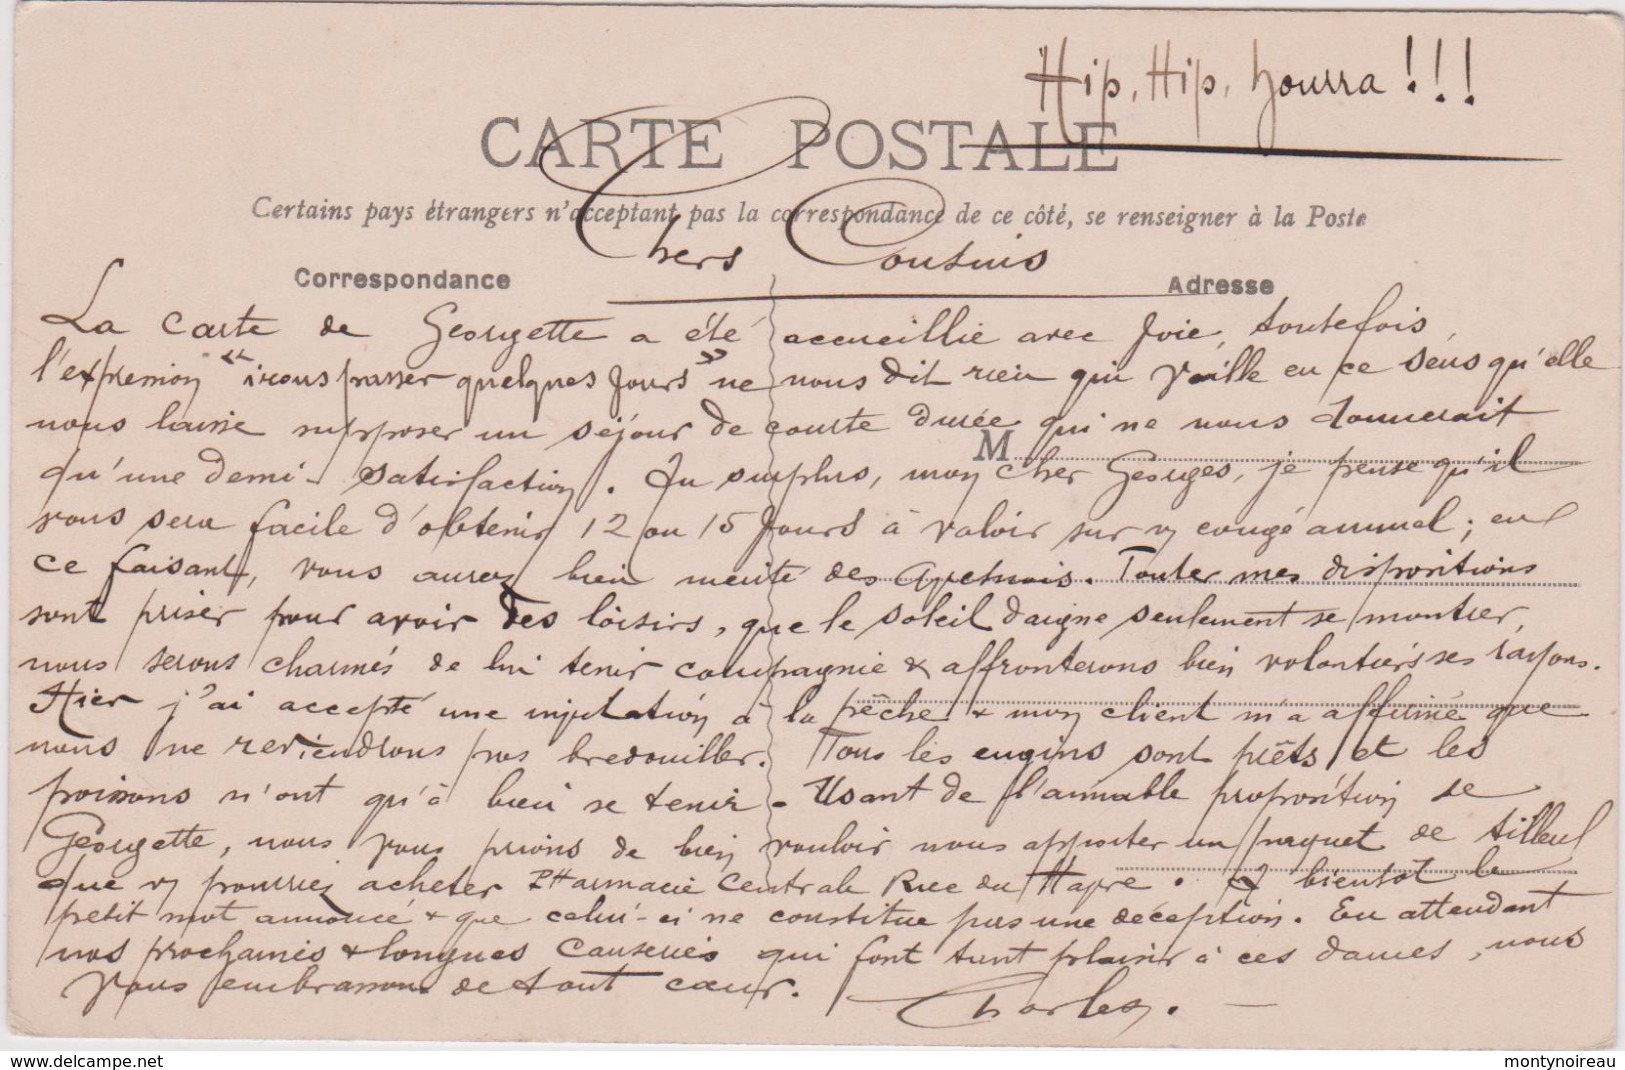 Hip, Hip, hourra !!!
CARTE POSTALE
Certains pays étrangers n'acceptant pas la correspondance de ce côté, se renseigner à la Poste
Chers Cousins
Correspondance
Adresse
La carte de Georgette a été accueillie avec joie, toutefois,
l'expression "irons passer quelques jours" ne nous dit rien qui vaille en ce sens qu'elle
nous laisse supposer un séjour de courte durée qui ne nous donnerait
M
qu'une demi-satisfaction. Au surplus, mon cher Georges, je pense qu'il
vous sera facile d'obtenir 12 ou 15 jours à valoir sur congé annuel; en
ce faisant, vous aurez bien mérité des Toutes mes dispositions
sont prises pour avoir des loisirs, que le soleil daigne seulement se montrer,
nous serons charmés de lui tenir compagnie & affronterons bien volontiers ses rayons.
Hier j'ai accepté une invitation à la pêche & mon client m'a affirmé que
nous ne reviendrons pas bredouilles. Tous les engins sont prêts et les
poissons n'ont qu'à bien se tenir - Usant de l'aimable proposition de
Georgette, nous vous prions de bien vouloir nous apporter un paquet de tilleul
que pourriez acheter Pharmacie Centrale Rue du Havre. A bientôt le
petit mot annoncé & que celui-ci ne constitue pas une déception. En attendant
nos prochaines & longues causeries qui font tant plaisir à ces dames, nous
vous embrassons de tout cœur. Charles. —
www.delcampe.net
montynoireau